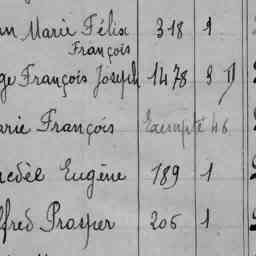 an Marie Félix 318 1
François
ge François Joseph 1478 9
arie François Exempté 46
edèl Eugène 189 1
lfred Prosper 206 1